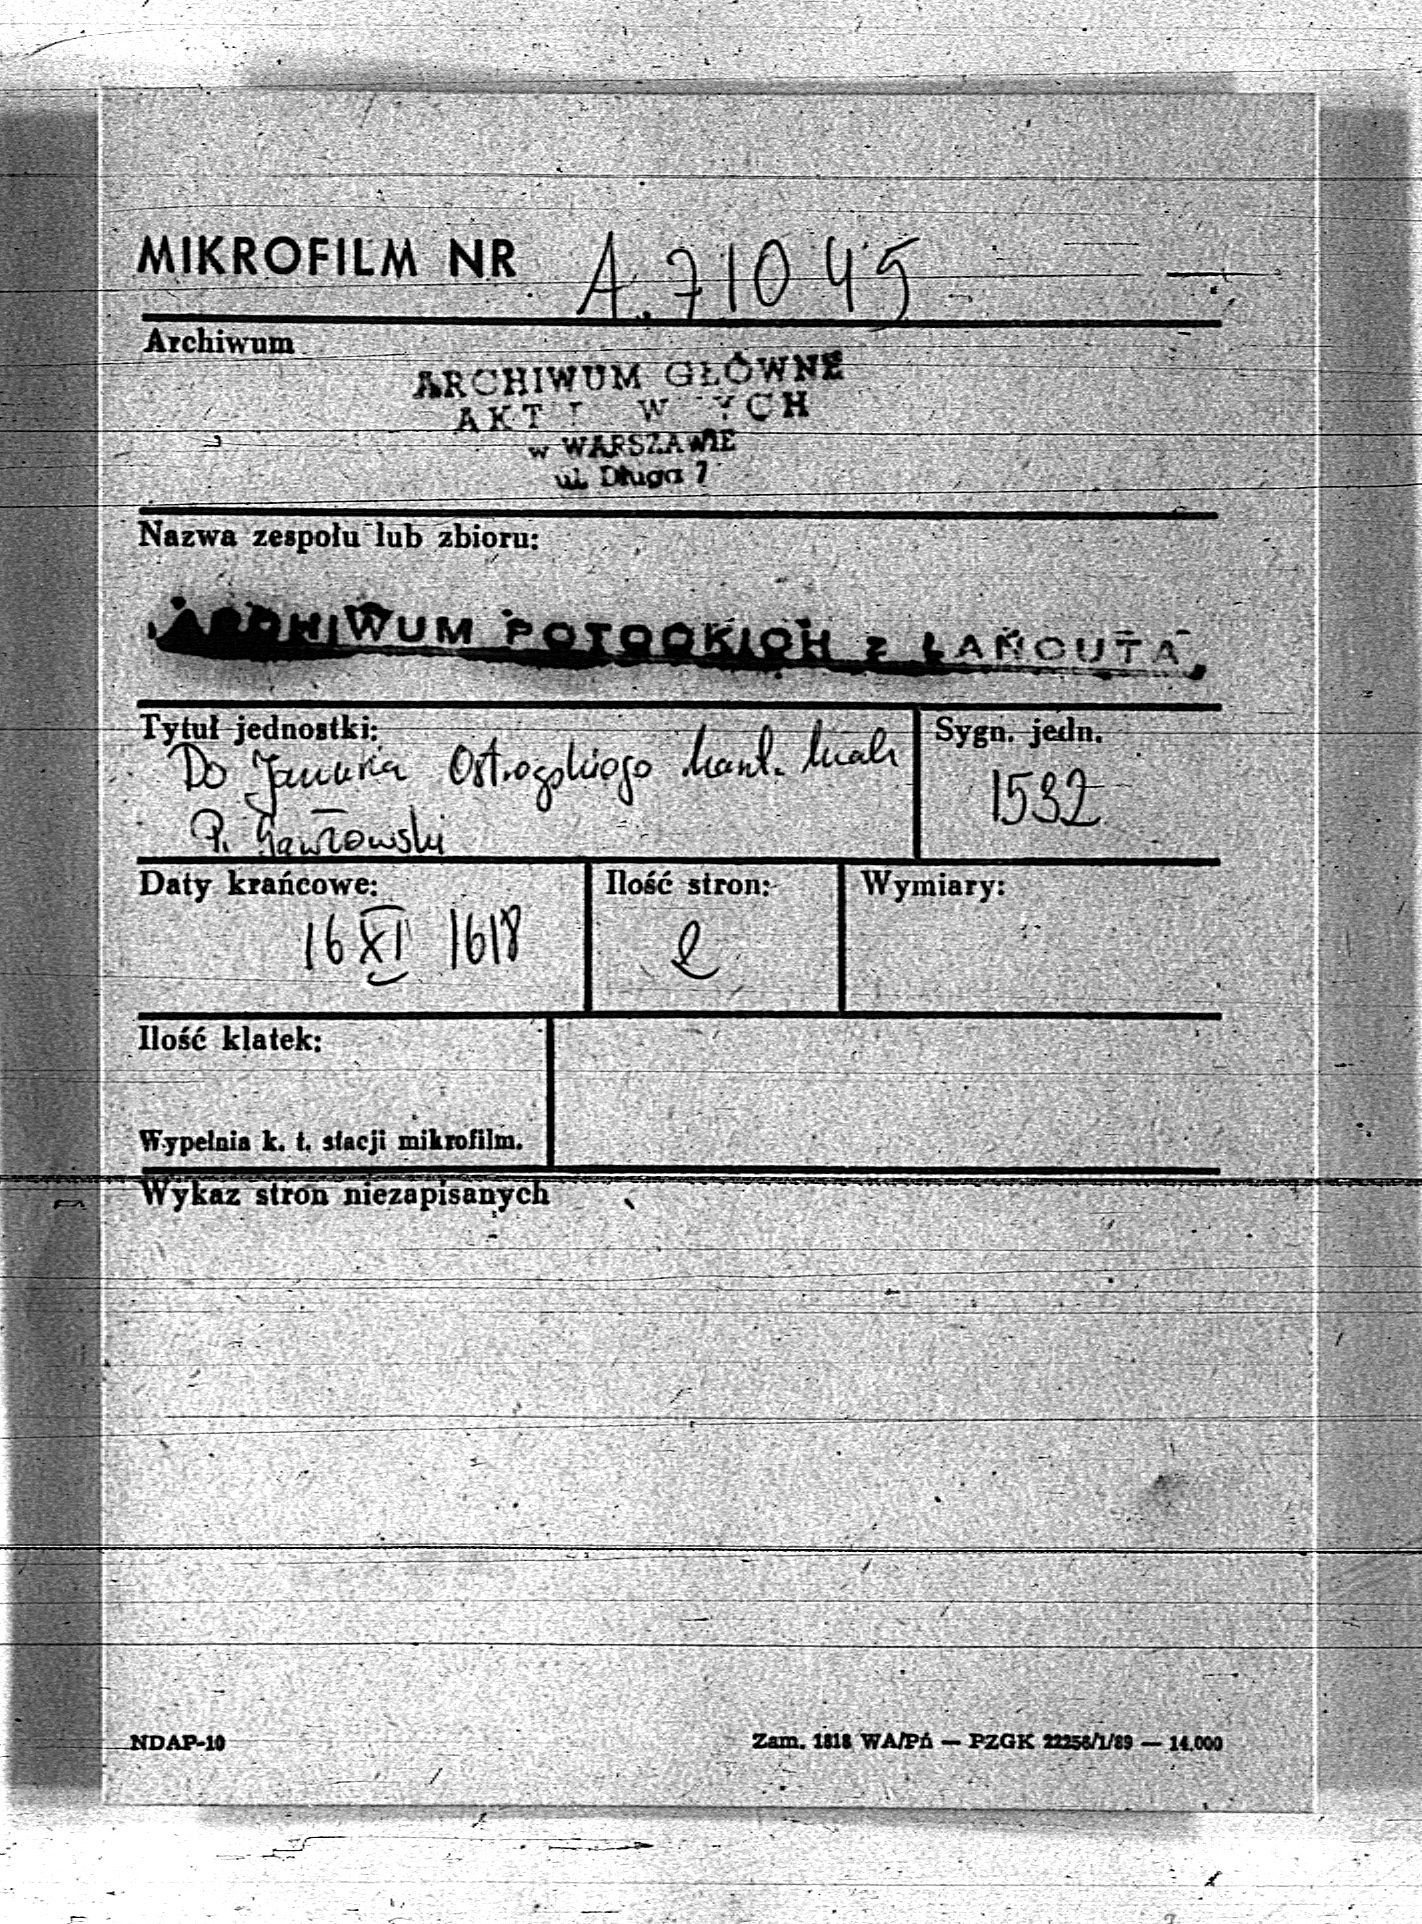 MIKROFILM NR A. 71045
Archiwum
ARCHIWUM GŁÓWNE
AKT W YCH
w WARSZAWIE
ul. Długa 7
Nazwa zespołu lub zbioru:
ARCHIWUM POTOCKICH z ŁAŃCUTA
Tytuł jednostki:
Do Janusza Ostrogskiego kaszt. krak
P. Gawłowski
Sygn. jedn.
1532
Daty krańcowe:
16 XI 1618
Ilość stron:
2
Wymiary:
Ilość klatek:
Wypełnia k. t. stacji mikrofilm.
Wykaz stron niezapisanych
NDAP-10
Zam. 1818 WA/Pń — PZGK 22258/1/89 — 14.000